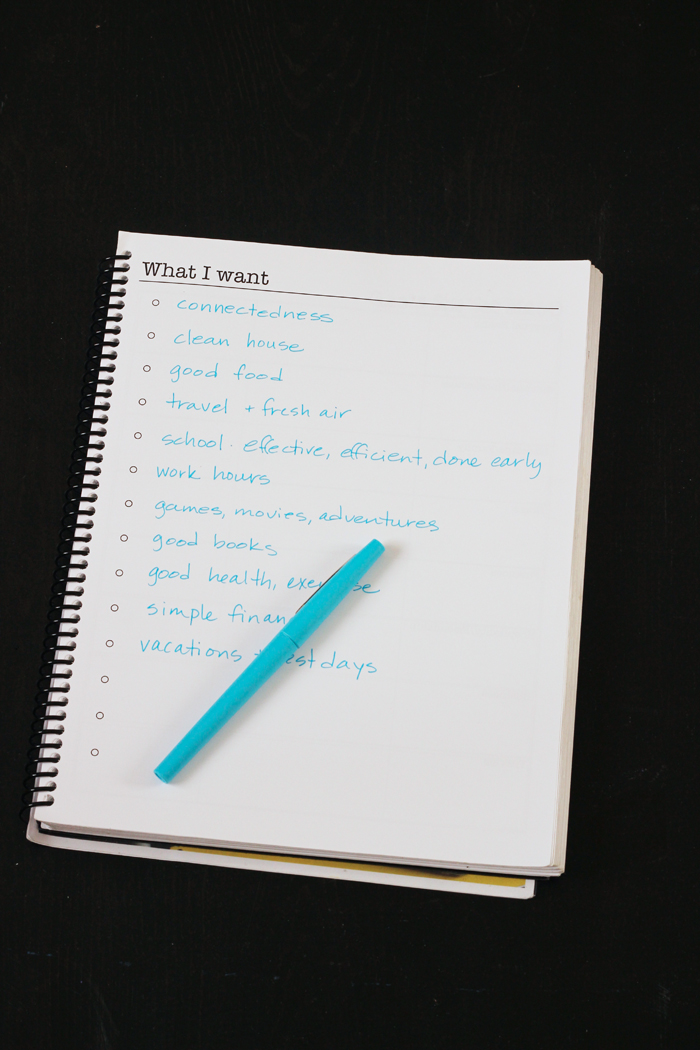 What I want
connectedness
clean house
good food
travel + fresh air
school. effective, efficient, done early
work hours
games, movies, adventures
good books
good health,
simple
vacations days